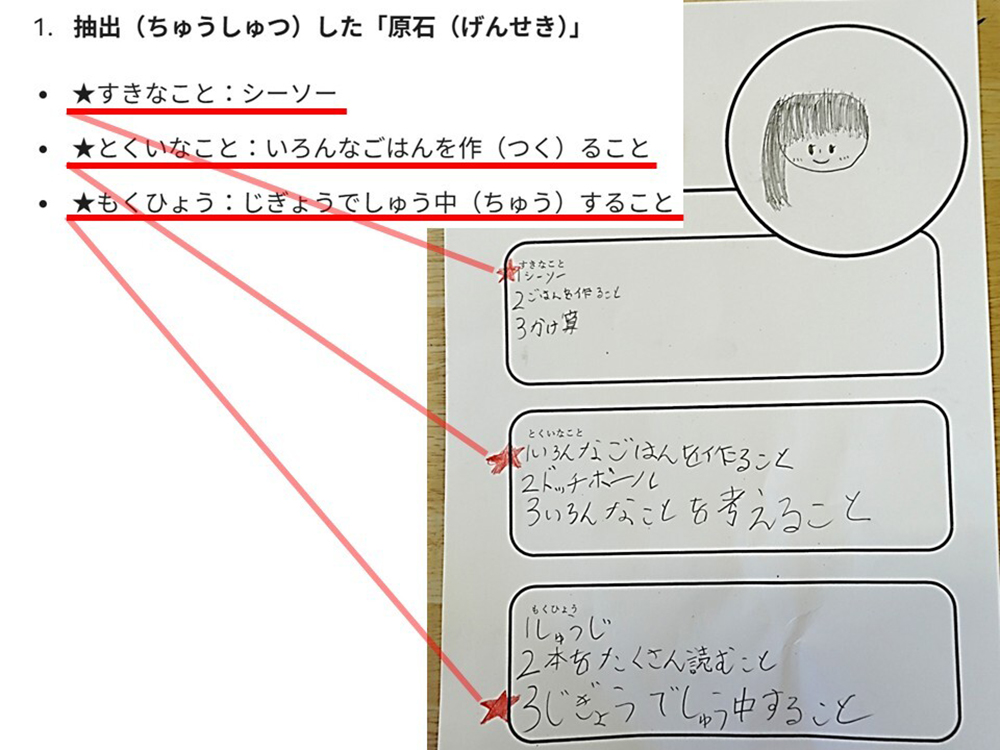 1. 抽出（ちゅうしゅつ）した「原石（げんせき）」
• ★すきなこと：シーソー
• ★とくいなこと：いろんなごはんを作（つく）ること
• ★もくひょう：じぎょうでしゅう中（ちゅう）すること
すきなこと
1シーソー
2ごはんを作ること
3かけ算
とくいなこと
1いろんなごはんを作ること
2ドッチボール
3いろんなことを考えること
もくひょう
1しゅうじ
2本をたくさん読むこと
3じぎょうでしゅう中すること